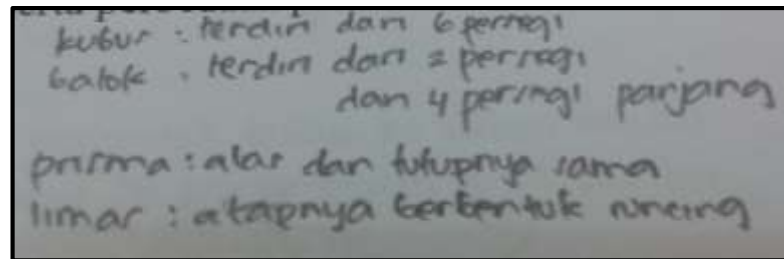 kubus : terdiri dari 6 persegi
balok : terdiri dari 2 persegi
dan 4 persegi panjang
prisma : alas dan tutupnya sama
limas : atapnya berbentuk runcing